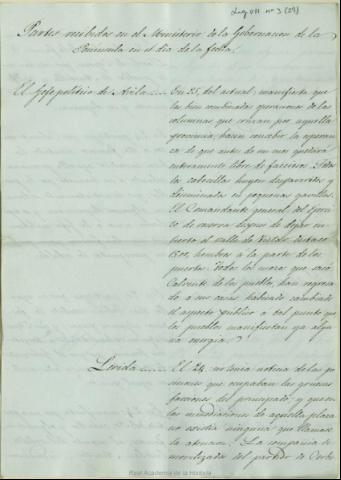 Leg VII nº 3 (29)
Partes recibidos en el Ministerio de la Gobernacion de la
Peninsula en el dia de la fecha.
El Gefe politico de Avila.... En 25, del actual, manifiesta que
las bien combinadas operaciones de las
columnas que cruzan por aquella
provincia, hacen concebir la esperan-
za de que antes de un mes quedará
enteramente libre de facciosos. Todos
los cabecillas huyen despavoridos y
diseminados en pequeñas gavillas.
El Comandante general del Egerci-
to de reserva despues de dejar cu-
bierto el valle de
1500, hombres a la parte de los
puertos. Todos los mozos que sacó
Calvente de los pueblos, han regresa-
do a sus casas habiendo cambiado
el aspecto público a tal punto que
los pueblos manifiestan ya algu-
na energia.
Lerida..... El 24, no tenia noticia de las po-
siciones que ocupaban las gruesas
facciones del principado, y que en
las inmediaciones de aquella plaza
no existia ninguna que llamase
la atencion. La compania de
movilizados del partido de Cerbe
Real Academia de la Historia